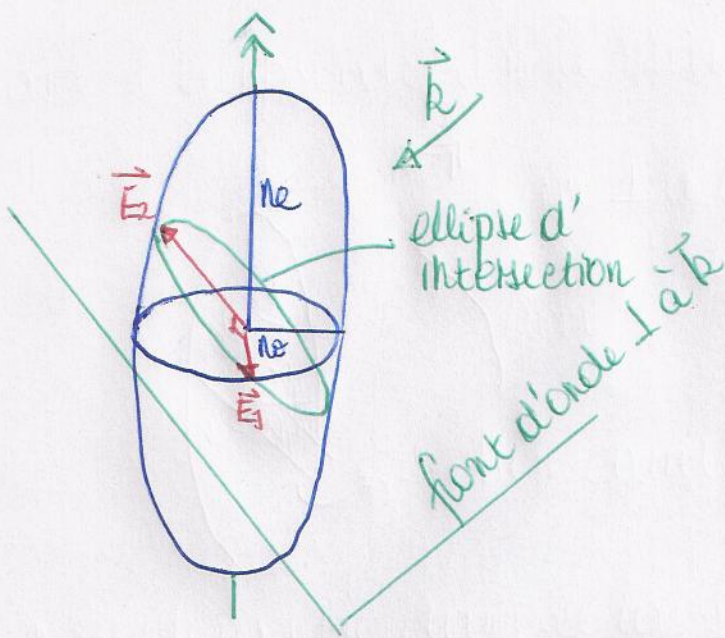 k
E₂
ne
ellipse d'
intersection
no
E₁
front d'onde ⊥ à k